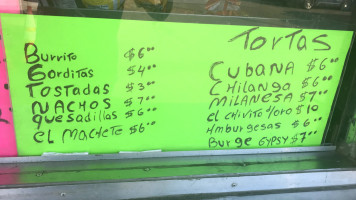 Burrito $6⁰⁰
Gorditas $4⁰⁰
Tostadas $3⁰⁰
NACHOS $7⁰⁰
quesadillas $6⁰⁰
EL MACHETE $6⁰⁰
TORTAS
CUBANA $6⁰⁰
CHILANGA $6⁰⁰
MILANESA $7⁰⁰
El CHIVITO $10
HMburgesas $6⁰⁰
Burge GYPSY $7⁰⁰